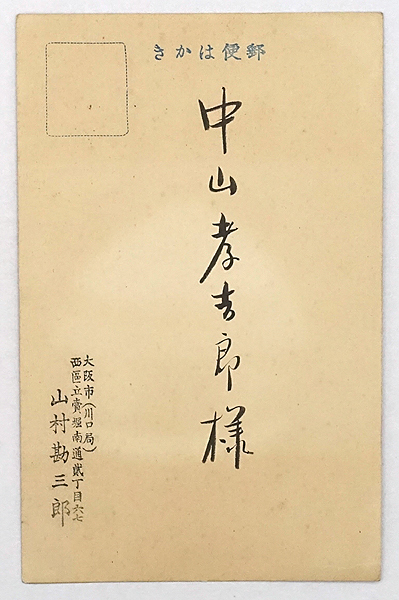 郵便はかき
中山孝吉郎様
大阪市(川口局)
西區立賣堀南通貳丁目六七
山村勘三郎